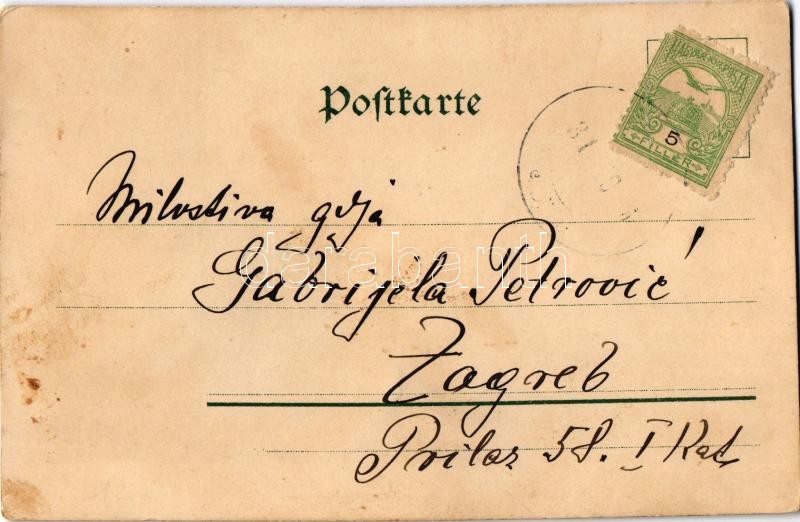 Postkarte
MAGYAR KIR. POSTA
5
FILLER
31
Milostiva gdja
Gabrijela Petrović
Zagreb
Prilaz 58. I Kat
darabanth